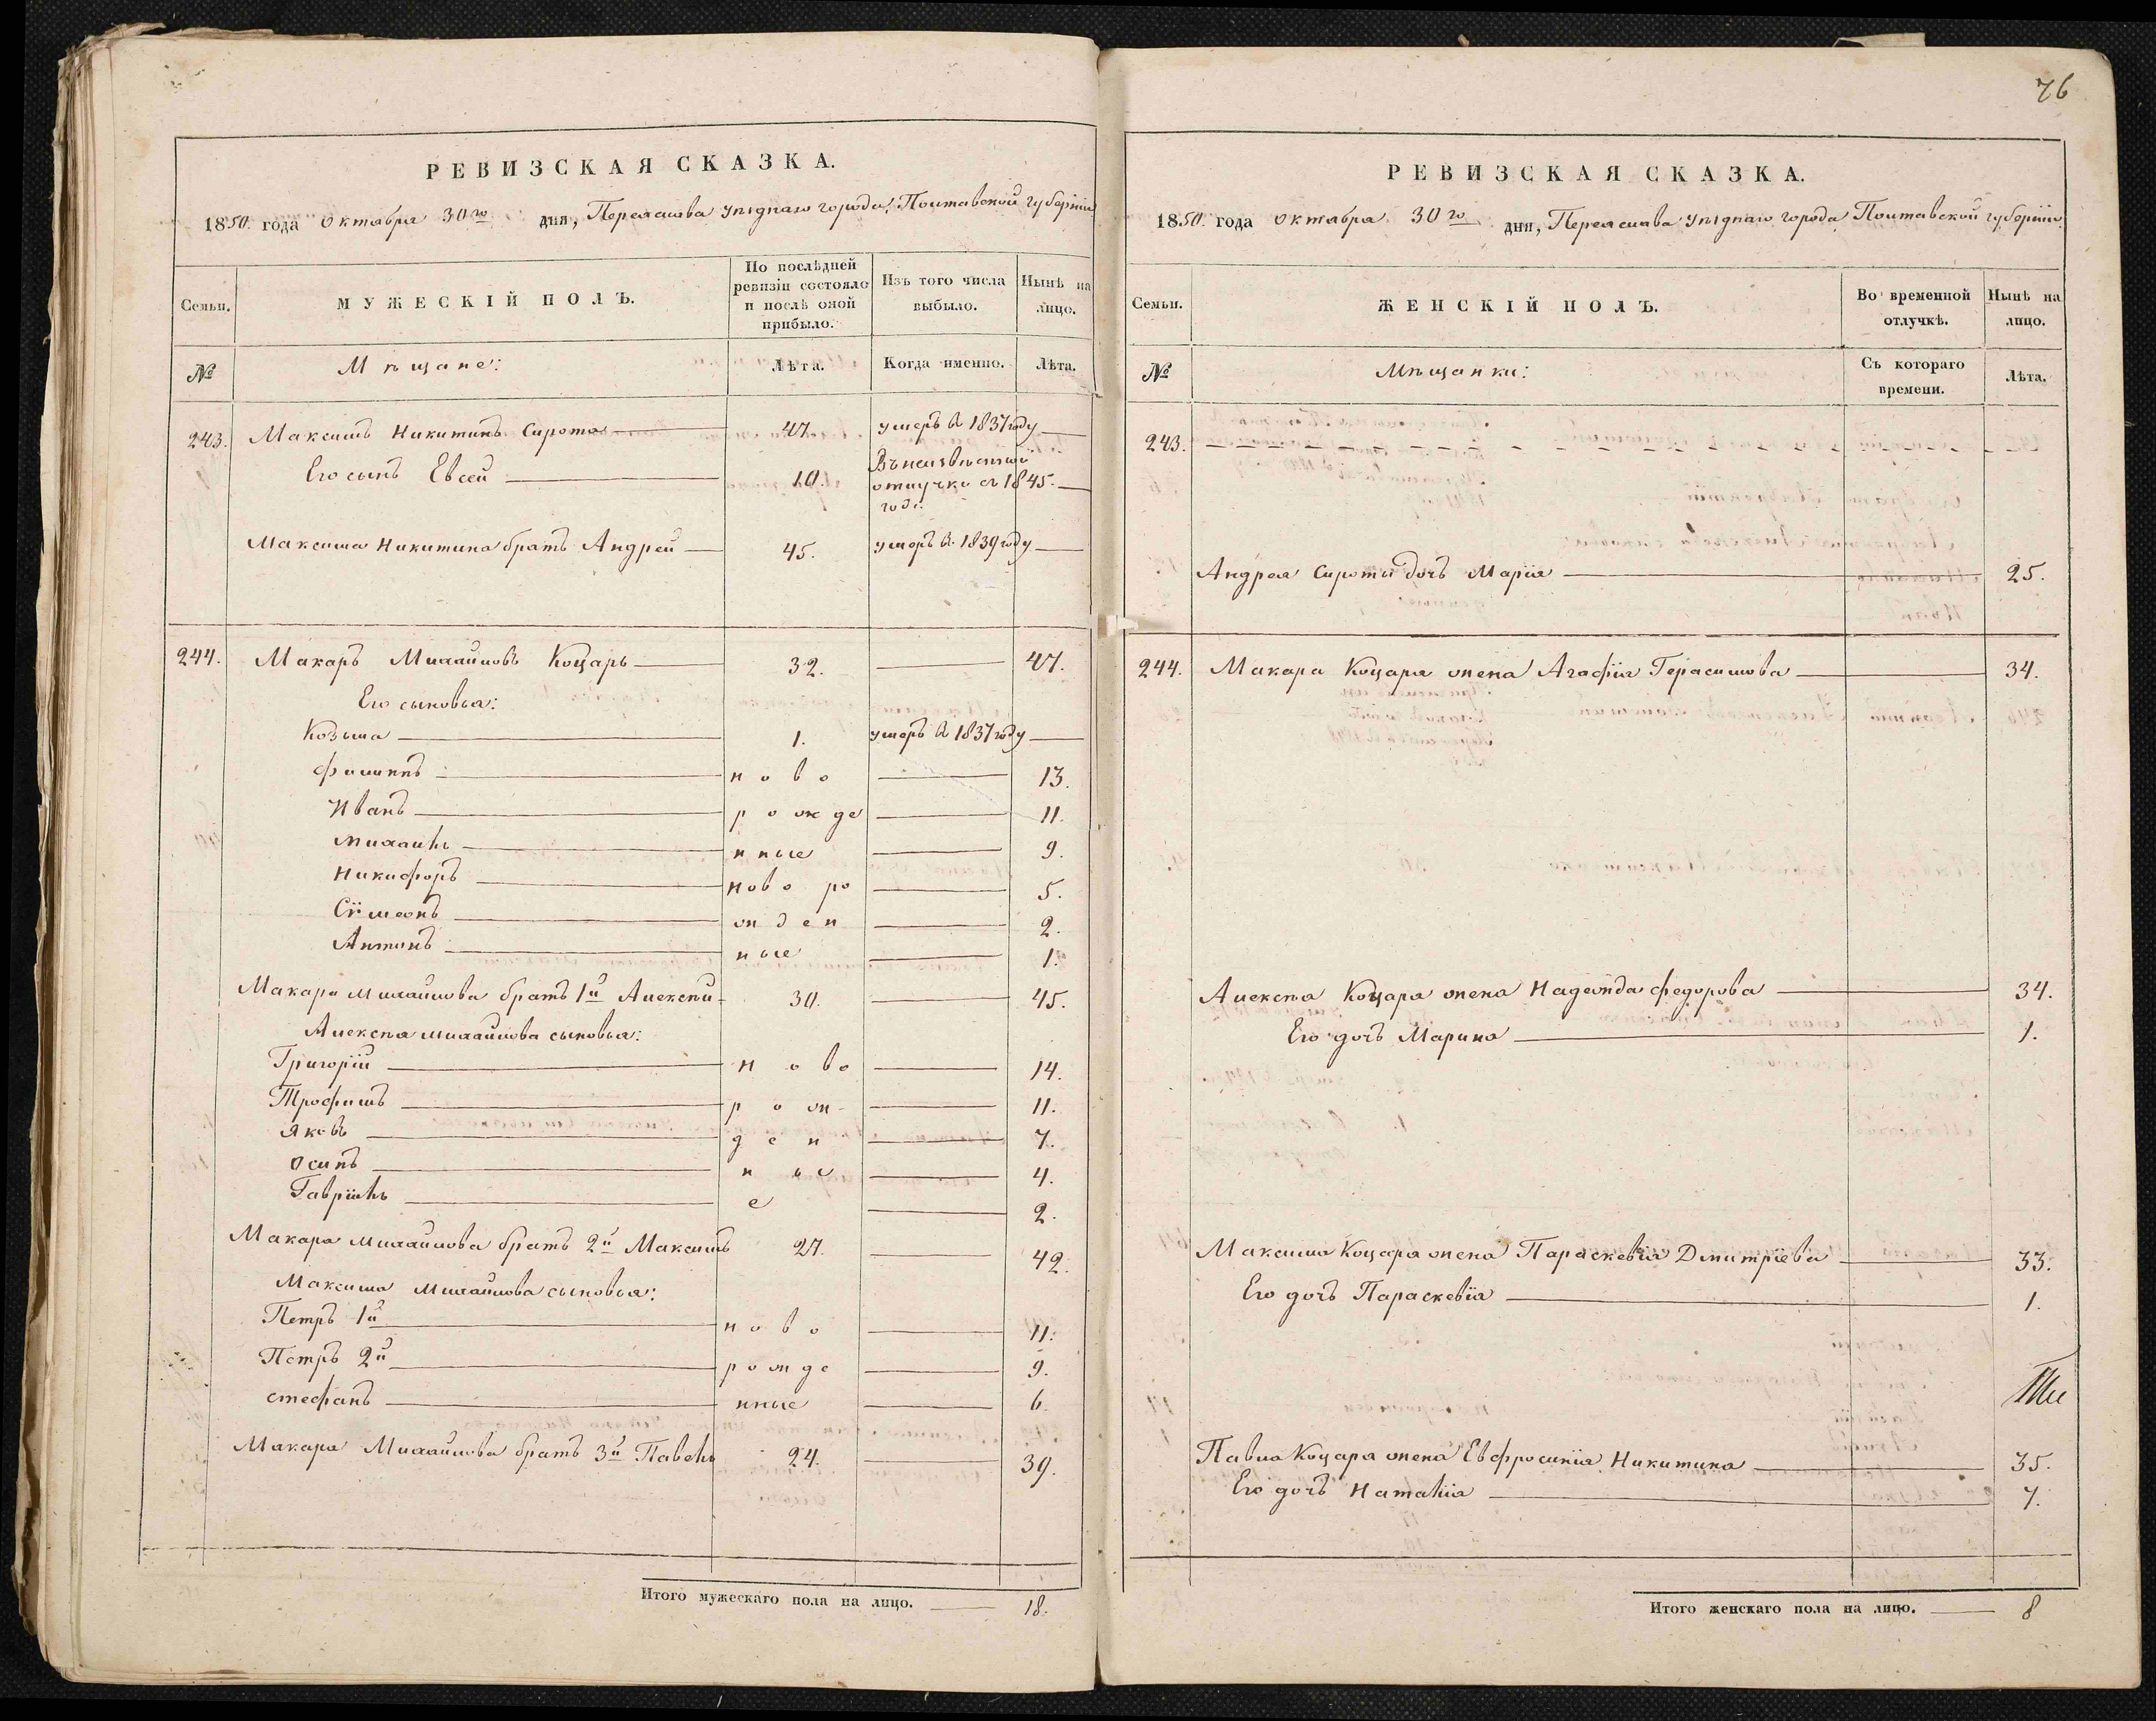 РЕВИЗСКАЯ СКАЗКА.
1850. года Октября 30го дня, Переяслова уѣзднаго города, Полтавской губерніи
Семьи.
МУЖЕСКІЙ ПОЛЪ.
По послѣдней ревизіи состояло и послѣ оной прибыло.
Изъ того числа выбыло.
Нынѣ на лицо.
№
Мѣщане:
Лѣта.
Когда именно.
Лѣта.
243. Максимъ Никитинъ Сирота 47. умеръ в 1837 году
Его сынъ Евсей 10. Въ неизвѣстной отлучке съ 1845. года
Максима Никитина братъ Андрей 45. умеръ в. 1839 году
244. Макаръ Михайловъ Коцарь 32. 47.
Его сыновья:
Козьма 1. умеръ в 1837 году
Филипъ ново 13.
Иванъ рожде 11.
Михаилъ нные 9.
Никифоръ ново ро 5.
Сѵмеонъ жден 2.
Антонъ ные 1.
Макара Михайлова братъ 1й Алексѣй 30. 45.
Алексѣя Михайлова сыновья:
Григорій ново 14.
Трофимъ рож 11.
Яковъ ден 7.
Осипъ ны 4.
Гавріилъ е 2.
Макара Михайлова братъ 2й Максимъ 27. 42.
Максима Михайлова сыновья:
Петръ 1й ново 11.
Петръ 2й рожде 9.
Стефанъ нные 6.
Макара Михайлова братъ 3й Павелъ 24. 39.
Итого мужескаго пола на лицо. 18.
76
РЕВИЗСКАЯ СКАЗКА.
1850. года Октября 30го дня, Переяслава уѣзднаго города, Полтавской губерніи.
Семьи.
ЖЕНСКІЙ ПОЛЪ.
Во временной отлучкѣ.
Нынѣ на лицо.
№
Мѣщанки:
Съ котораго времени.
Лѣта.
243.
Андрея Сироты дочь Марія 25.
244. Макара Коцаря жена Агафія Герасимова 34.
Алексѣя Коцаря жена Надежда Федорова 34.
Его дочь Марина 1.
Максима Коцаря жена Параскевія Дмитріева 33.
Его дочь Параскевія 1.
Павла Коцаря жена Евфросинія Никитина 35.
Его дочь Наталія 7.
Итого женскаго пола на лицо. 8